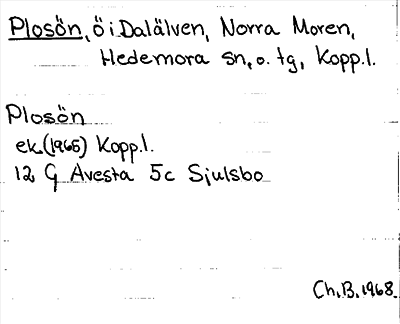 Plosön, ö i Dalälven, Norra Moren,
Hedemora sn, o. tg, Kopp.l.
Plosön
ek.(1965) Kopp.l.
12 G Avesta 5c Sjulsbo
Ch.B.1968.